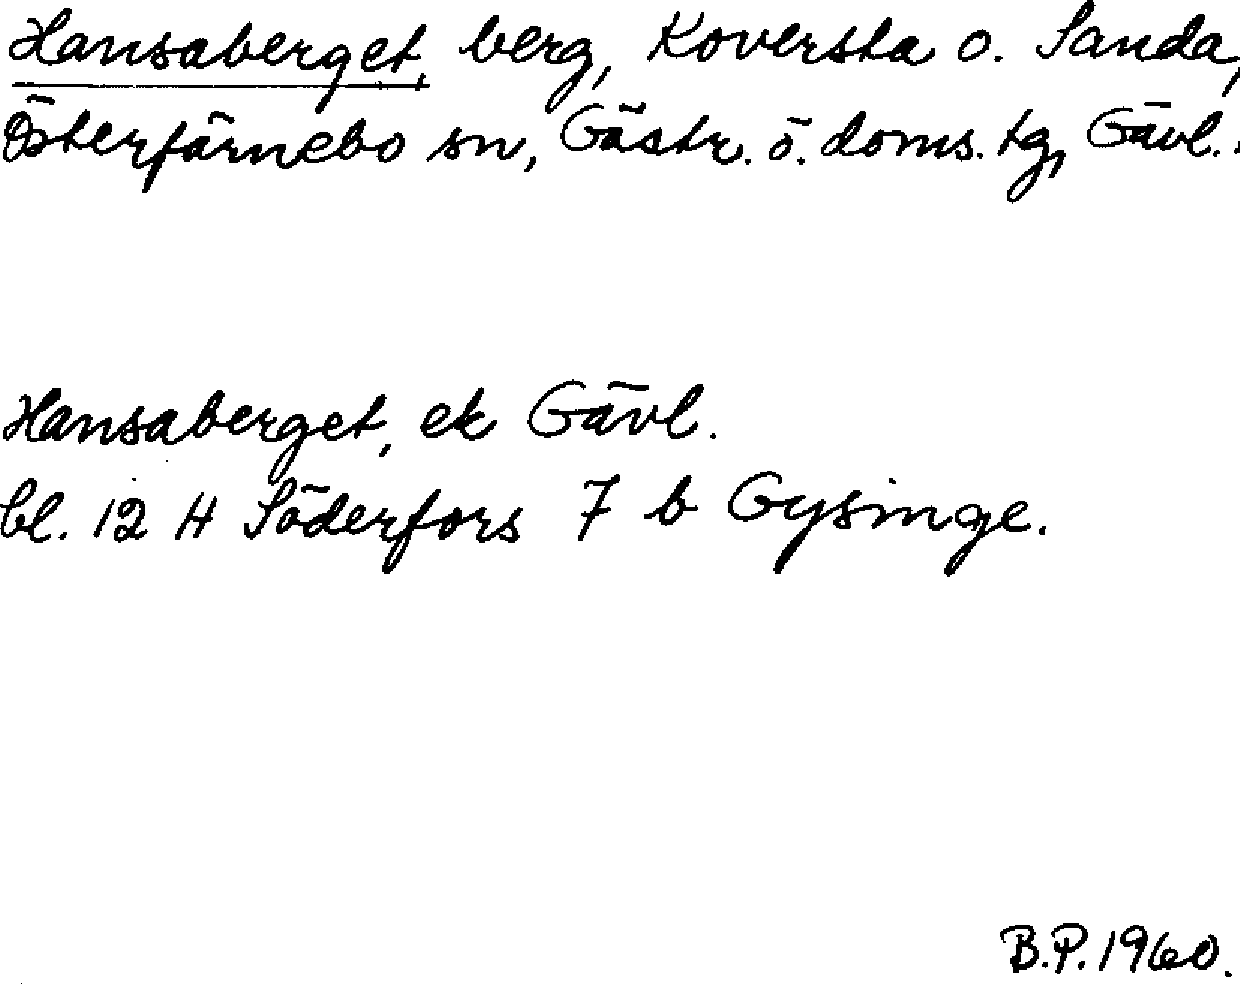 Hansaberget, berg, Koversta o. Sanda,
Österfärnebo sn, Gästr. ö. doms. tg, Gävl. 
Hansaberget, ek Gävl.
bl. 12 H Söderfors 7 b Gysinge.
B.P. 1960.